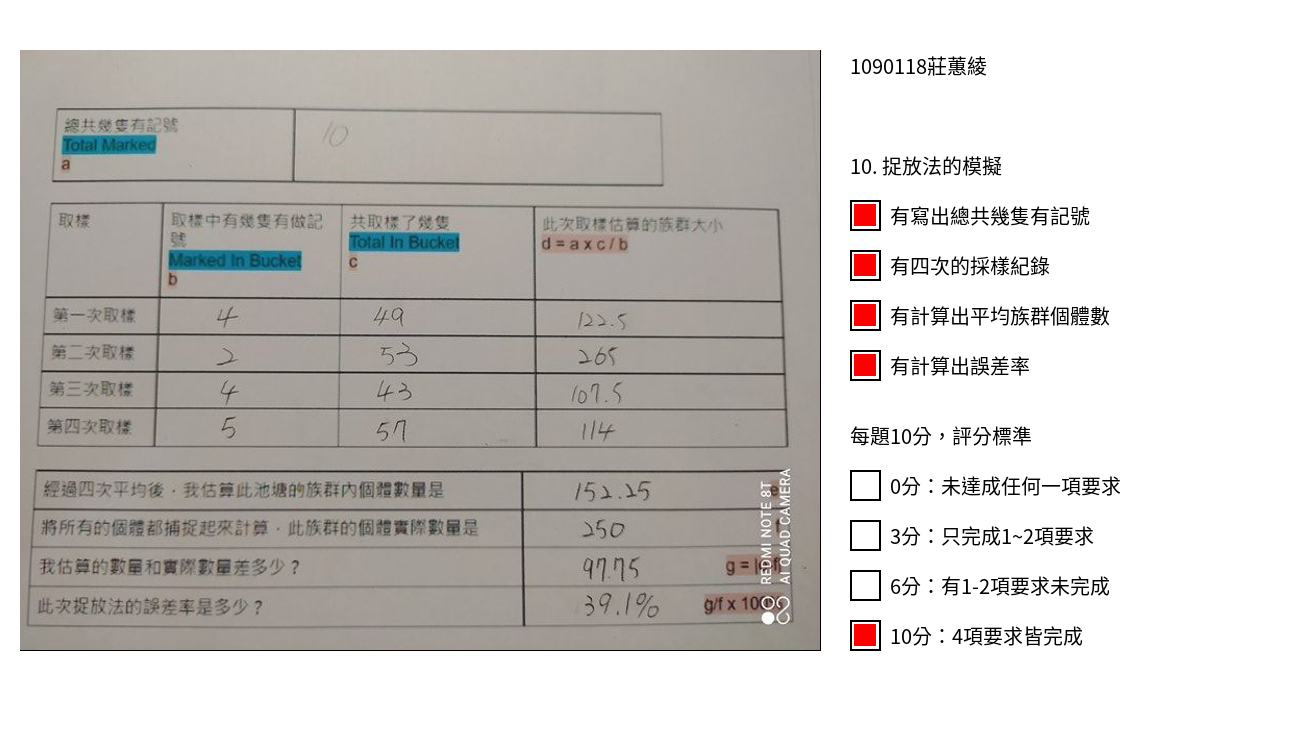 總共幾隻有記號
Total Marked
a
10
取樣
取樣中有幾隻有做記號
Marked In Bucket
b
共取樣了幾隻
Total In Bucket
c
此次取樣估算的族群大小
d = a x c / b
第一次取樣 4 49 122.5
第二次取樣 2 53 265
第三次取樣 4 43 107.5
第四次取樣 5 57 114
經過四次平均後，我估算此池塘的族群內個體數量是 152.25 e
將所有的個體都捕捉起來計算，此族群的個體實際數量是 250 f
我估算的數量和實際數量差多少？ 97.75 g =
此次捉放法的誤差率是多少？ 39.1% g/f x 100%
REDMI NOTE 8T
AI QUAD CAMERA
1090118莊蕙綾
10. 捉放法的模擬
有寫出總共幾隻有記號
有四次的採樣紀錄
有計算出平均族群個體數
有計算出誤差率
每題10分，評分標準
0分：未達成任何一項要求
3分：只完成1~2項要求
6分：有1-2項要求未完成
10分：4項要求皆完成